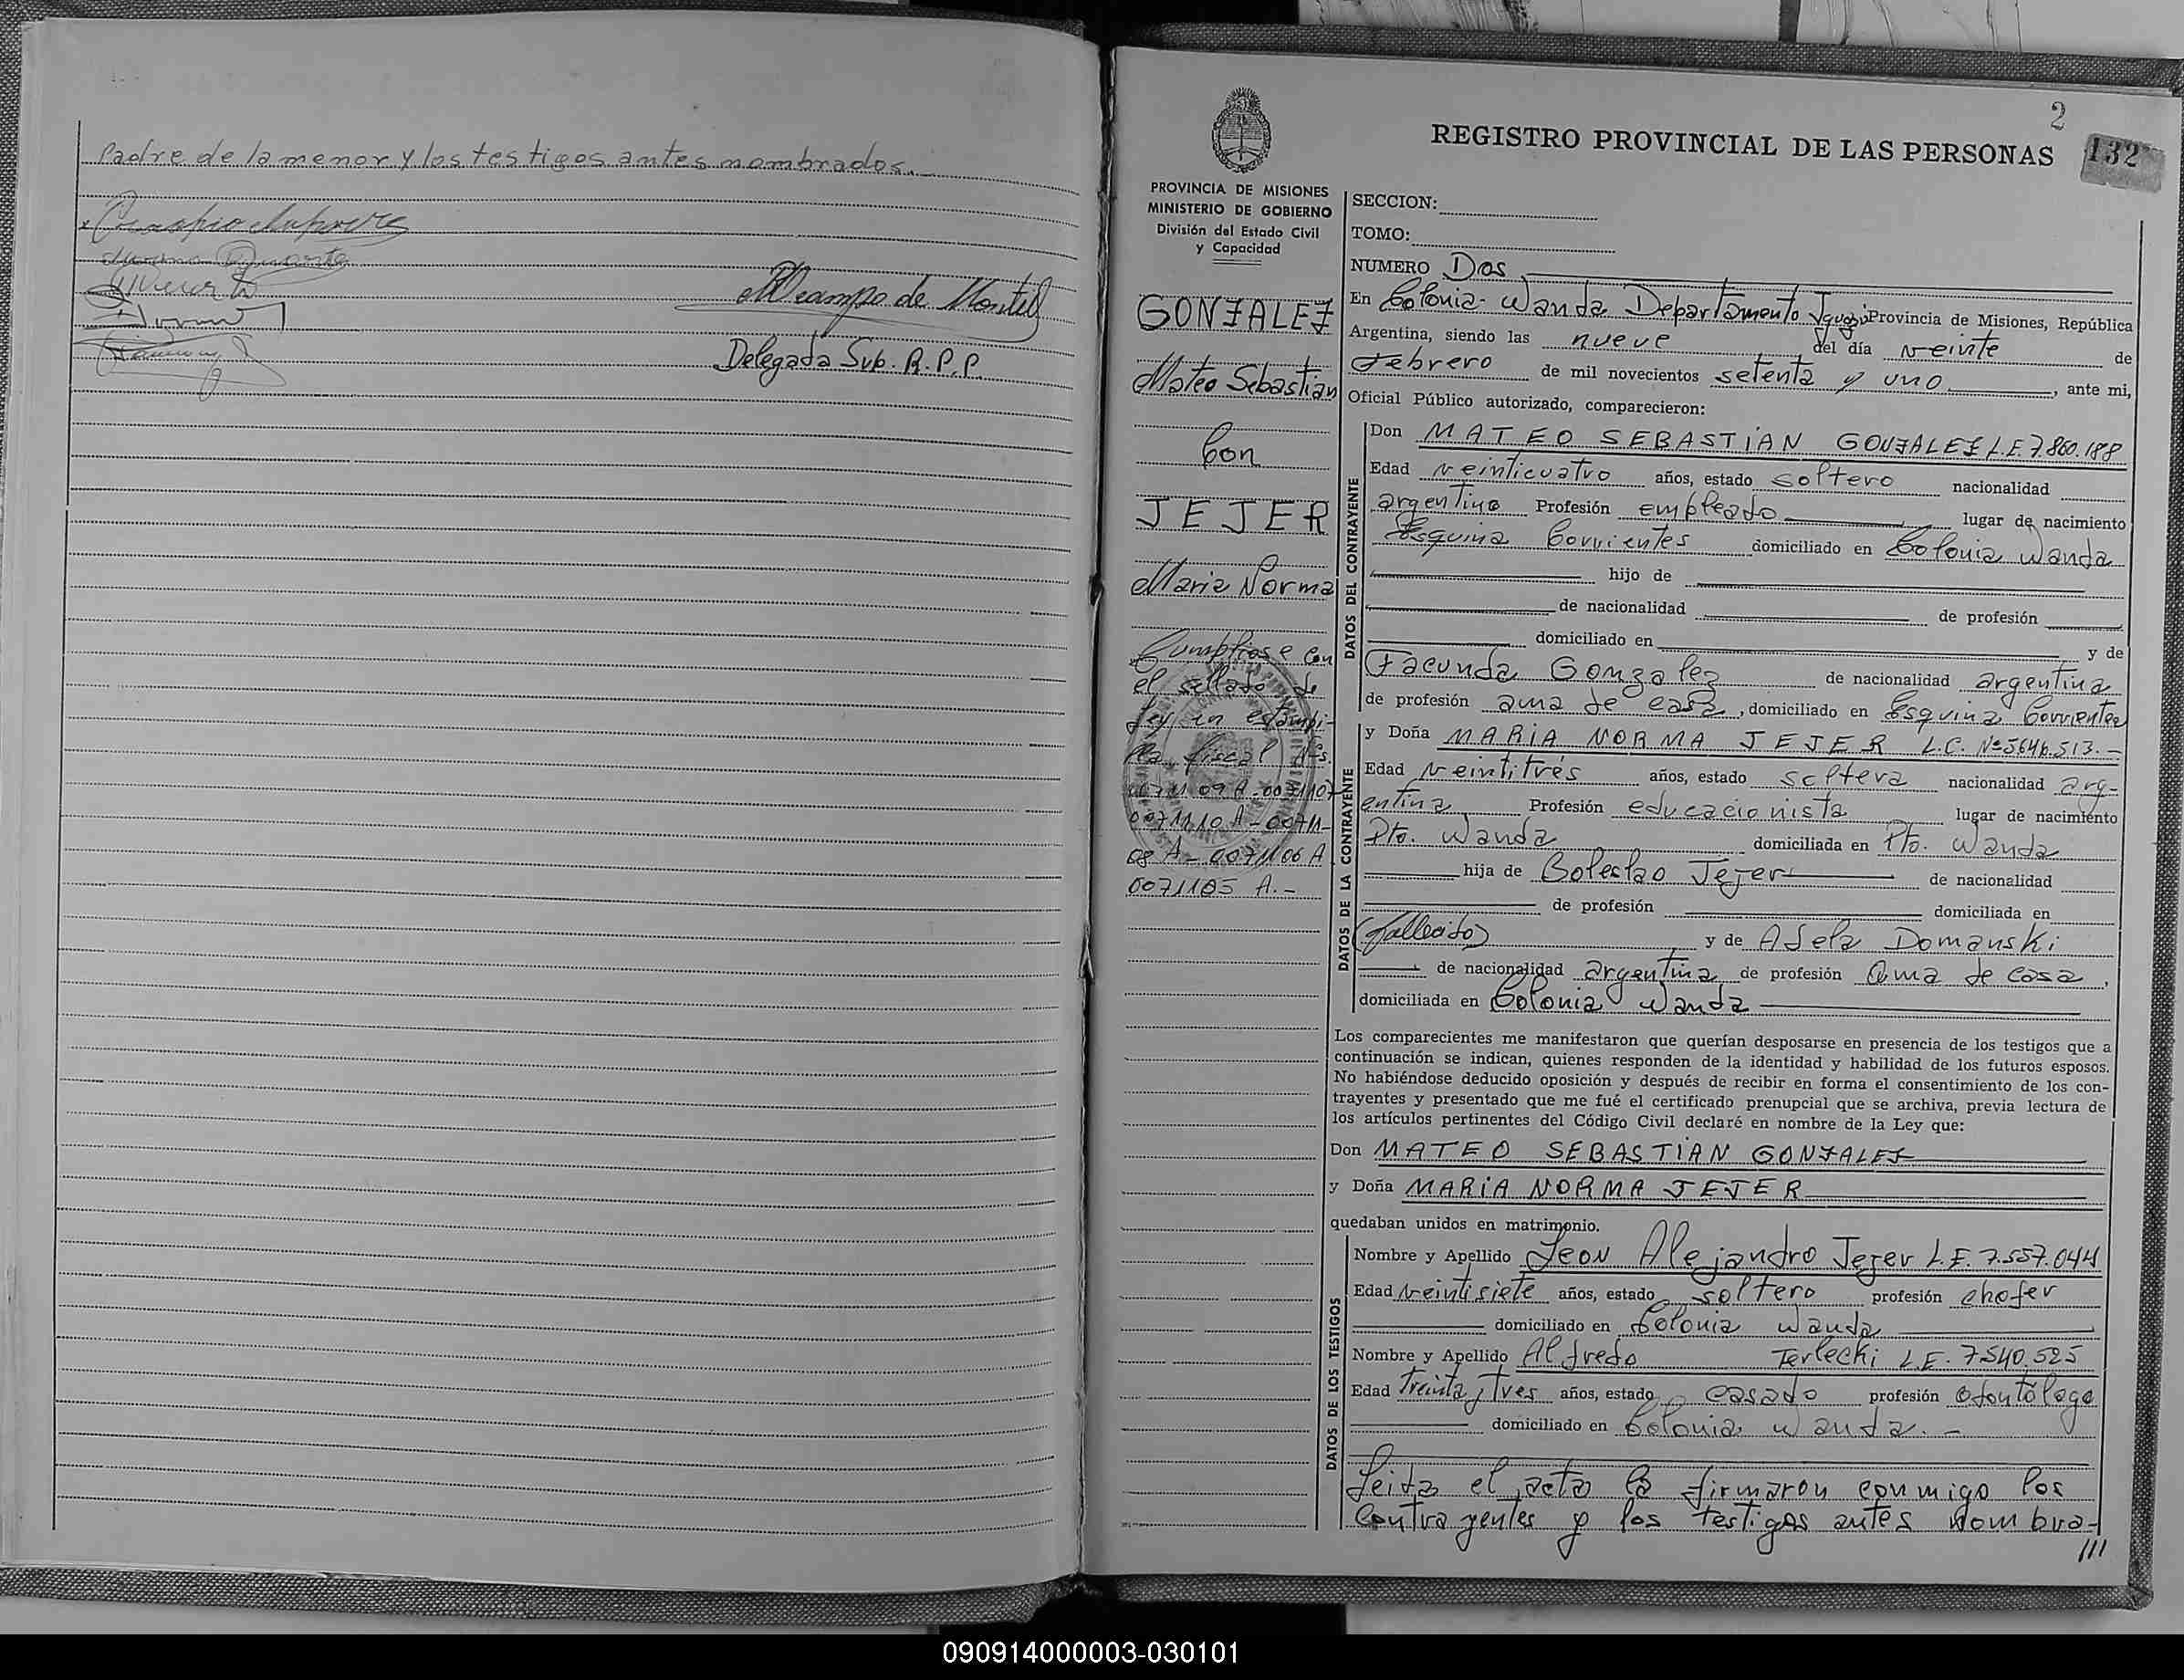 Padre de la menor y los testigos antes nombrados.
Delegada Sub. R.P.P.
2
REGISTRO PROVINCIAL DE LAS PERSONAS
132
PROVINCIA DE MISIONES
MINISTERIO DE GOBIERNO
División del Estado Civil
y Capacidad
GONZALEZ
Mateo Sebastian
Con
JEJER
Maria Norma
Cumpliose con
el sellado de
Ley en estampi-
lla fiscal
0071110 A - 00711-
08 A - 0071106 A
0071105 A.-
SECCION:
TOMO:
NUMERO Dos
En Colonia Wanda Departamento Iguazú Provincia de Misiones, República
Argentina, siendo las nueve del día veinte de
Febrero de mil novecientos setenta y uno, ante mi,
Oficial Público autorizado, comparecieron:
DATOS DEL CONTRAYENTE
Don MATEO SEBASTIAN GONZALEZ L.E. 7.860.188
Edad veinticuatro años, estado soltero nacionalidad
argentino Profesión empleado lugar de nacimiento
Esquina Corrientes domiciliado en Colonia Wanda
hijo de
de nacionalidad de profesión
domiciliado en y de
Facunda Gonzalez de nacionalidad argentina
de profesión ama de casa, domiciliado en Esquina Corrientes
DATOS DE LA CONTRAYENTE
y Doña MARIA NORMA JEJER L.C. Nº 5646.513.-
Edad veintitrés años, estado soltera nacionalidad arg-
entina Profesión educacionista lugar de nacimiento
Pto. Wanda domiciliada en Pto. Wanda
hija de Boleslao Jejer de nacionalidad
de profesión domiciliada en
(fallecido) y de Adela Domanski
de nacionalidad argentina de profesión ama de casa,
domiciliada en Colonia Wanda
Los comparecientes me manifestaron que querían desposarse en presencia de los testigos que a
continuación se indican, quienes responden de la identidad y habilidad de los futuros esposos.
No habiéndose deducido oposición y después de recibir en forma el consentimiento de los con-
trayentes y presentado que me fué el certificado prenupcial que se archiva, previa lectura de
los artículos pertinentes del Código Civil declaré en nombre de la Ley que:
Don MATEO SEBASTIAN GONZALEZ
y Doña MARIA NORMA JEJER
quedaban unidos en matrimonio.
DATOS DE LOS TESTIGOS
Nombre y Apellido Leon Alejandro Jejer L.E. 7.557.044
Edad veintisiete años, estado soltero profesión chofer
domiciliado en Colonia Wanda
Nombre y Apellido Alfredo Terlecki L.E. 7540.525
Edad treinta y tres años, estado casado profesión Odontólogo
domiciliado en Colonia Wanda.-
Leida el acta la firmaron conmigo los
Contrayentes y los testigos antes nombra-
///
090914000003-030101